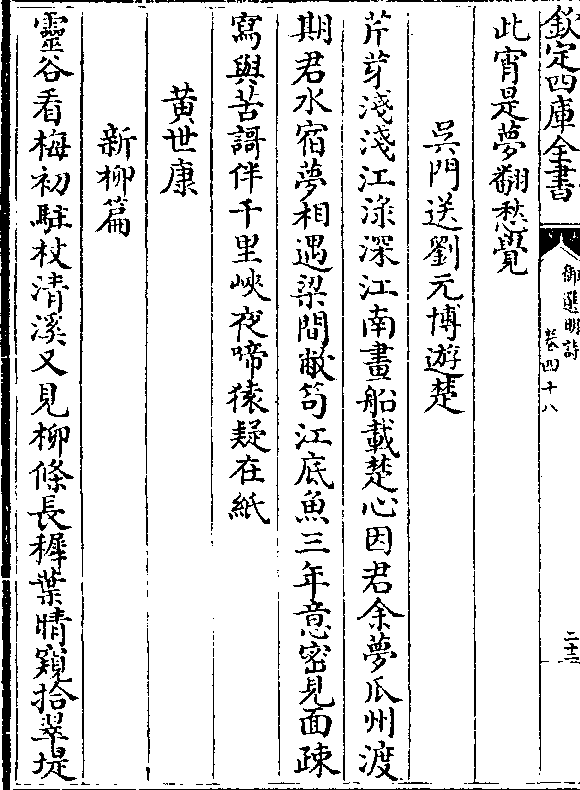 欽定四庫全書
御選明詩
卷四十八
二十三
此宵是夢翻愁覺
吳門送劉元博遊楚
芹芽淺淺江淥深江南畫船載楚心因君余夢瓜州渡
期君水宿夢相遇梁間敝笱江底魚三年意密見面疎
寫與苦謌伴千里峽夜啼猿疑在紙
黃世康
新柳篇
靈谷看梅初駐杖清溪又見柳條長穉葉晴窺拾翠堤